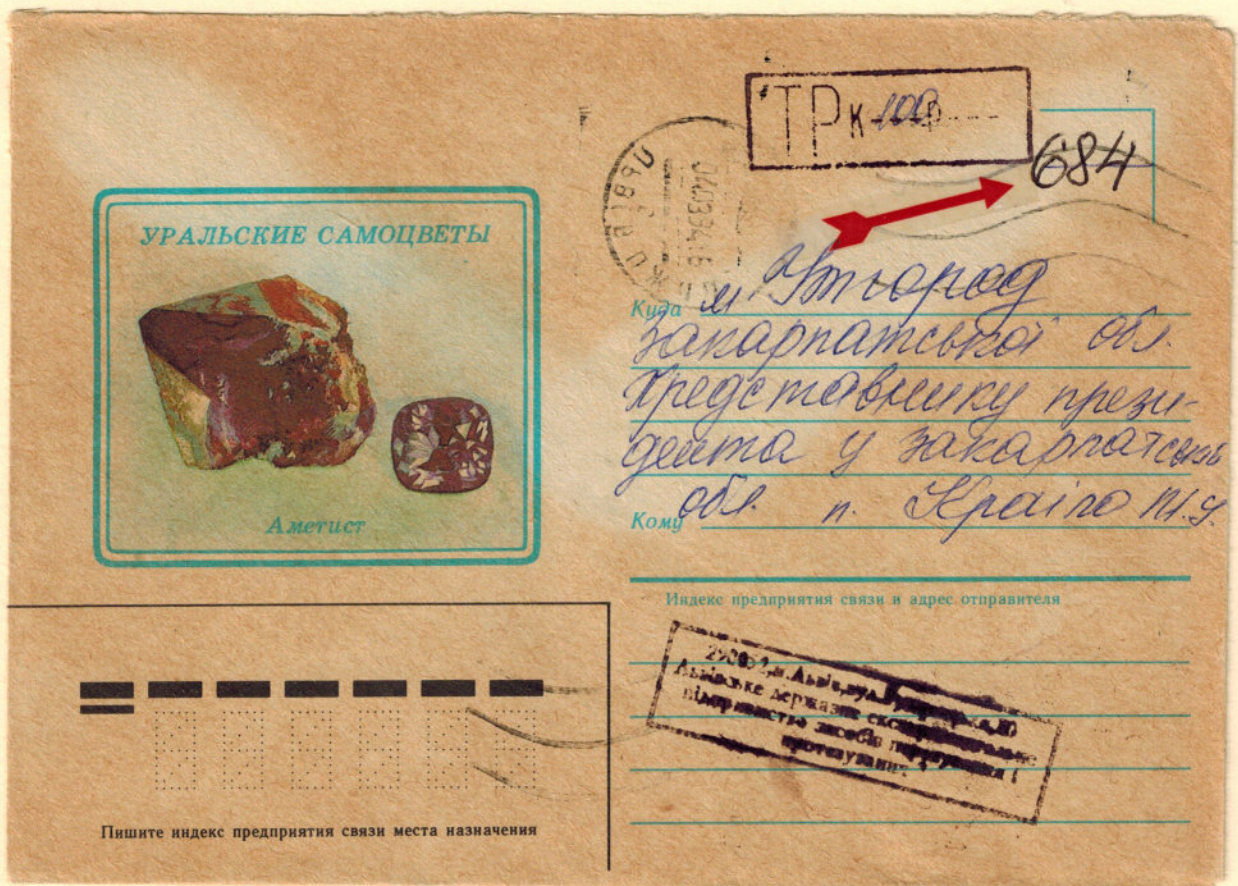 ТР к 100 р
684
УРАЛЬСКИЕ САМОЦВЕТЫ
Аметист
Куда м Ужгород
Закарпатської обл.
Представнику прези-
дента у закарпатській
Кому обл. п. Краіло М.Ю.
Индекс предприятия связи и адрес отправителя
м. Львів, вул.
Львівське державне експериментальне
підприємство засобів пересування і
протезування
Пишите индекс предприятия связи места назначения